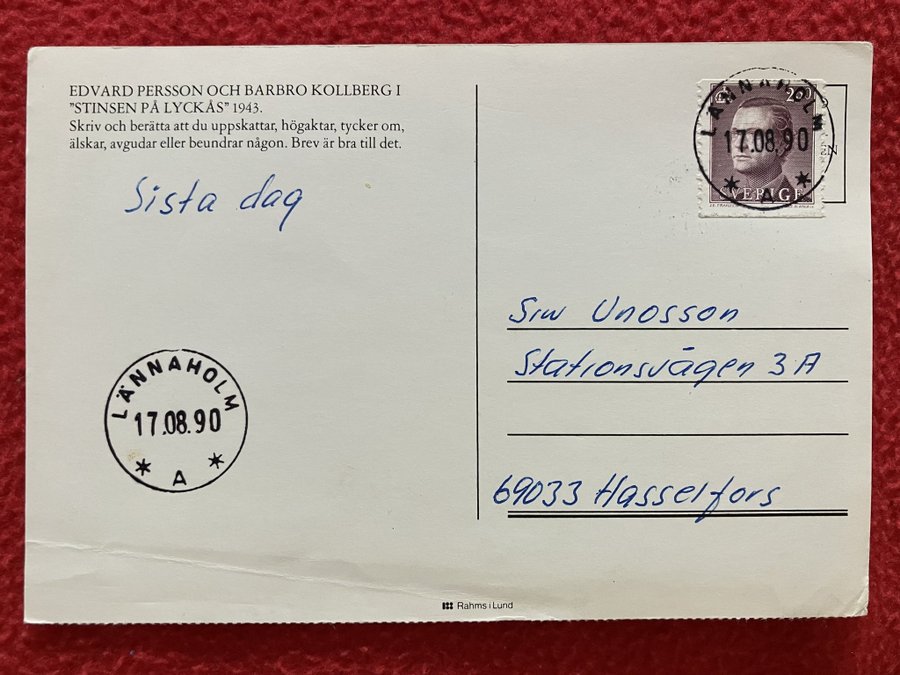 EDVARD PERSSON OCH BARBRO KOLLBERG I
"STINSEN PÅ LYCKÅS" 1943.
Skriv och berätta att du uppskattar, högaktar, tycker om,
älskar, avgudar eller beundrar någon. Brev är bra till det.
Sista dag
LÄNNAHOLM
17.08.90
A
LÄNNAHOLM
17.08.90
A
SVERIGE
Siw Unosson
Stationsvägen 3A
69033 Hasselfors
Rahms i Lund